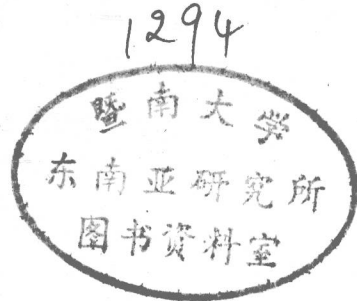 1294
暨南大学
东南亚研究所
图书资料室